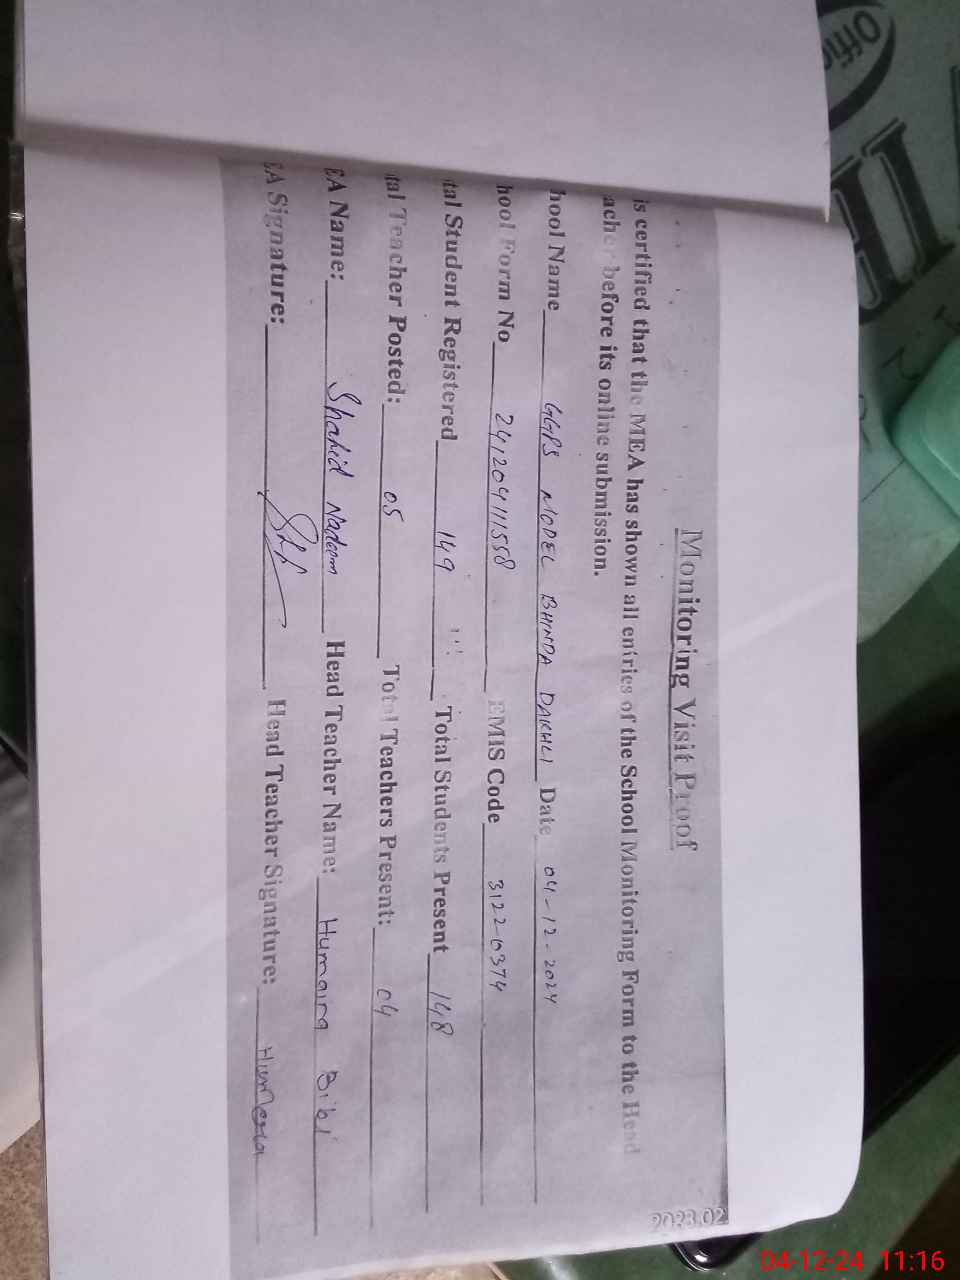 Monitoring Visit Proof
is certified that the MEA has shown all entries of the School Monitoring Form to the Head
acher before its online submission.
hool Name GGPS MODEL BHINDA DAKHLI Date 04-12-2024
hool Form No 241204111558 EMIS Code 31220374
tal Student Registered 149 Total Students Present 148
tal Teacher Posted: 05 Total Teachers Present: 04
EA Name: Shahid Nadeem Head Teacher Name: Humaira Bibi
EA Signature: Head Teacher Signature: Humera
2023.02
Offic
04-12-24 11:16